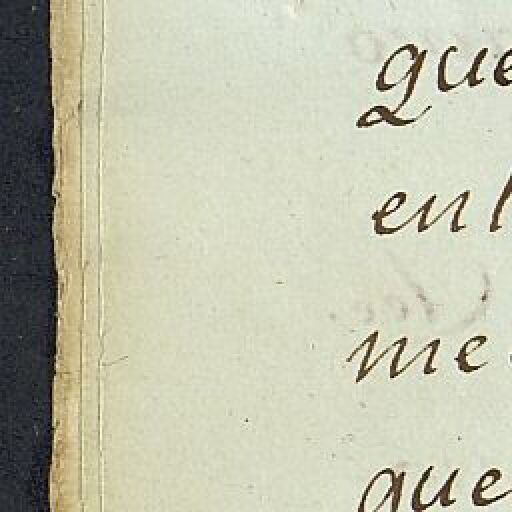 que
en l
me
que